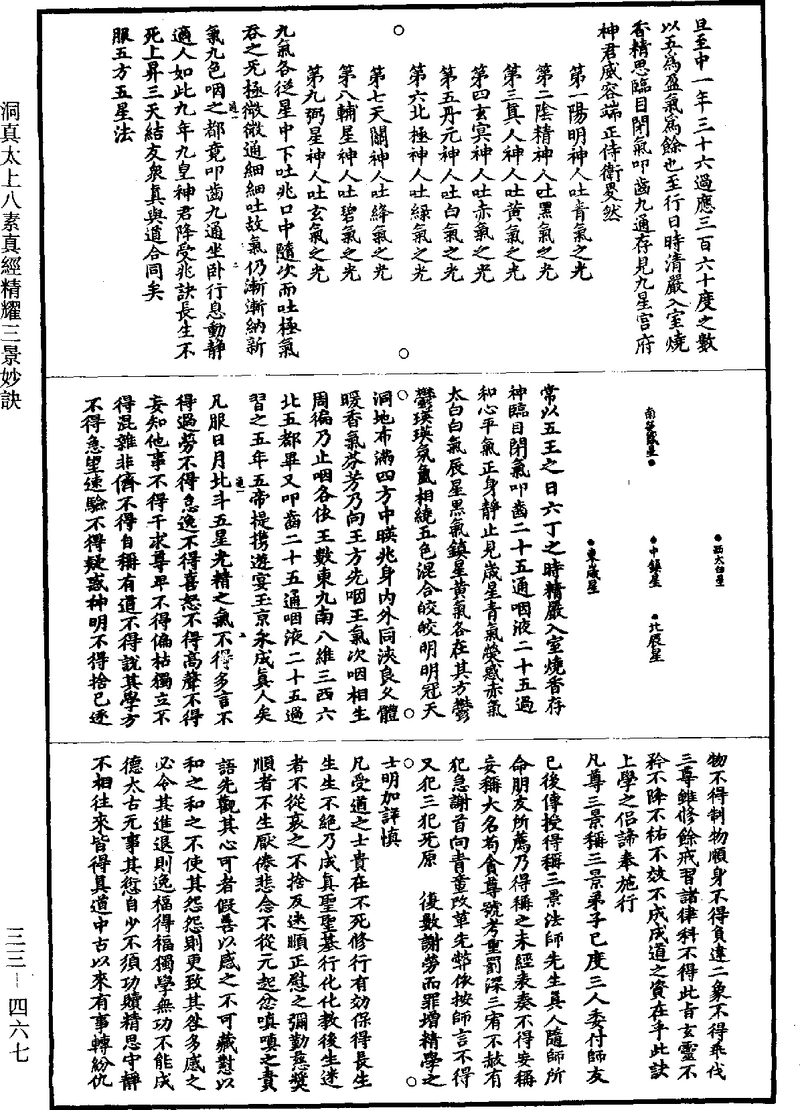 旦至中一年三十六過應三百六十度之數
以五為盈氣為餘也至行日時清嚴入室燒
香精思臨目閉氣叩齒九通存見九星宮府
神君威容端正侍衛畢然
第一陽明神人吐青氣之光
第二陰精神人吐黑氣之光
第三真人神人吐黃氣之光
第四玄冥神人吐赤氣之光
第五丹元神人吐白氣之光
第六北極神人吐綠氣之光
第七天關神人吐絳氣之光
第八輔星神人吐碧氣之光
第九弼星神人吐玄氣之光
九氣各從星中下吐兆口中隨次而吐極氣
吞之無極微微通細細吐故氣仍漸漸納新
氣九色咽之都竟叩齒九通坐臥行息動靜
適人如此九年九皇神君降受兆訣長生不
死上昇三天結友衆真與道合同矣
服五方五星法
西太白星
南熒惑星
中鎮星
北辰星
東歲星
常以五王之日六丁之時精嚴入室燒香存
神臨目閉氣叩齒二十五通咽液二十五過
和心平氣正身靜止見歲星青氣熒惑赤氣
太白白氣辰星黑氣鎮星黃氣各在其方鬱
鬱瑛瑛氛氳相繞五色混合皎皎明明冠天
洞地布滿四方中暎兆身內外同浹良久體
暖香氣芬芳乃向王方先咽王氣次咽相生
周徧乃止咽各依王數東九南八維三西六
北五都畢又叩齒二十五通咽液二十五過
習之五年五帝提攜遊宴玉京永成真人矣
凡服日月北斗五星光精之氣不得多言不
得過勞不得怠逸不得喜怒不得高聲不得
妄知他事不得干求尊卑不得偏枯獨立不
得混雜非儕不得自稱有道不得說其學方
不得急望速驗不得疑惑神明不得捨己逐
物不得制物順身不得負違二象不得乖伐
三尊雖修餘戒習諸律科不得此旨玄靈不
矜不降不祐不效不成成道之資在乎此訣
上學之侶諦奉施行
凡尊三景稱三景弟子已度三人委付師友
已後傳授得稱三景法師先生真人隨師所
命朋友所薦乃得稱之未經表奏不得妄稱
妄稱大名苟貪尊號考重罰深三宥不赦有
犯急謝首向青童改革先弊依按師言不得
又犯三犯死原　復數謝勞而罪增精學之
士明加詳慎
凡受道之士貴在不死修行有効保得長生
生生不絕乃成真聖聖基行化化教後生迷
者不從哀之不捨及迷順正慰之彌勤慈獎
順者不生厭倦悲念不從元起忿嗔嗔之責
語先觀其心可者假善以感之不可藏懟以
和之和之不使其怨怨則更致其咎多感之
必令其進退則逸福得福獨學無功不能成
德太古元事其愆自少不須功贖精思守靜
不相往來皆得真道中古以來有事轉紛仇
洞真太上八素真經精耀三景妙訣
三三—四六七